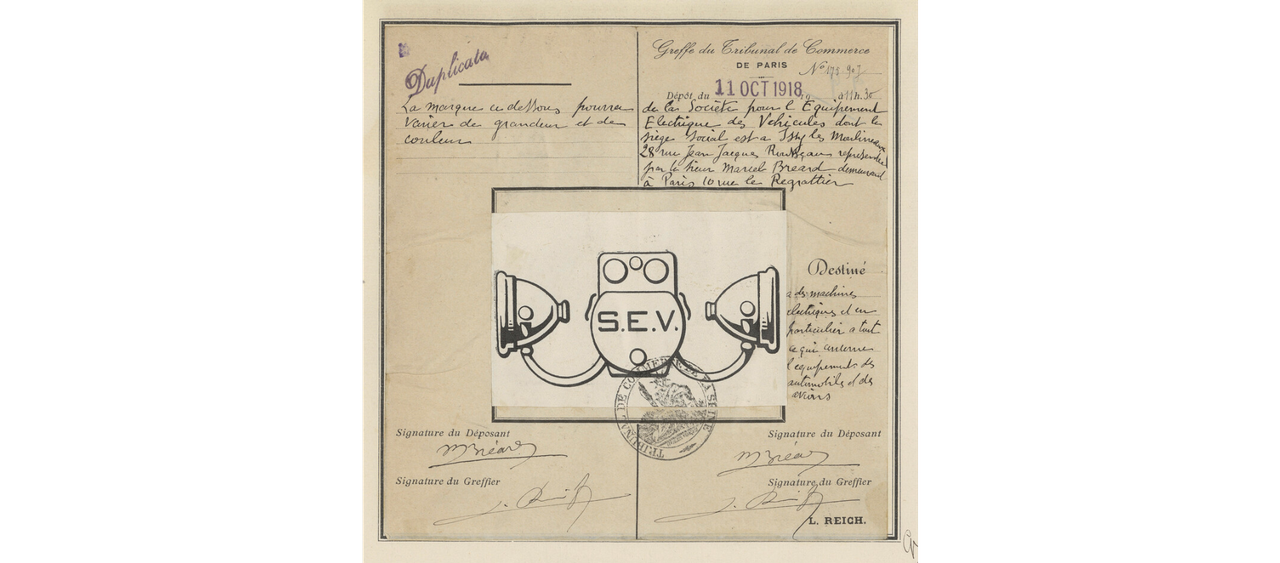 Duplicata
La marque ci dessous pourra
varier de grandeur et de
couleur
Greffe du Tribunal de Commerce
DE PARIS
Nº
Dépôt du 11 OCT 1918 à 11h.30
de la Société pour l'Equipement
Electrique des Vehicules dont le
siège social est a Issy les Moulineaux
28 rue Jean Jacques Rousseau représentée
par le sieur Marcel Bréard demeurant
à Paris 10 rue le Regrattier
S.E.V.
TRIBUNAL DE COMMERCE DE LA SEINE
Destiné
a des machines
electriques et en
particulier a tout
ce qui concerne
l'equipement des
automobiles et des
avions
Signature du Déposant
M Bréard
Signature du Greffier
Signature du Déposant
M Bréard
Signature du Greffier
L. REICH.